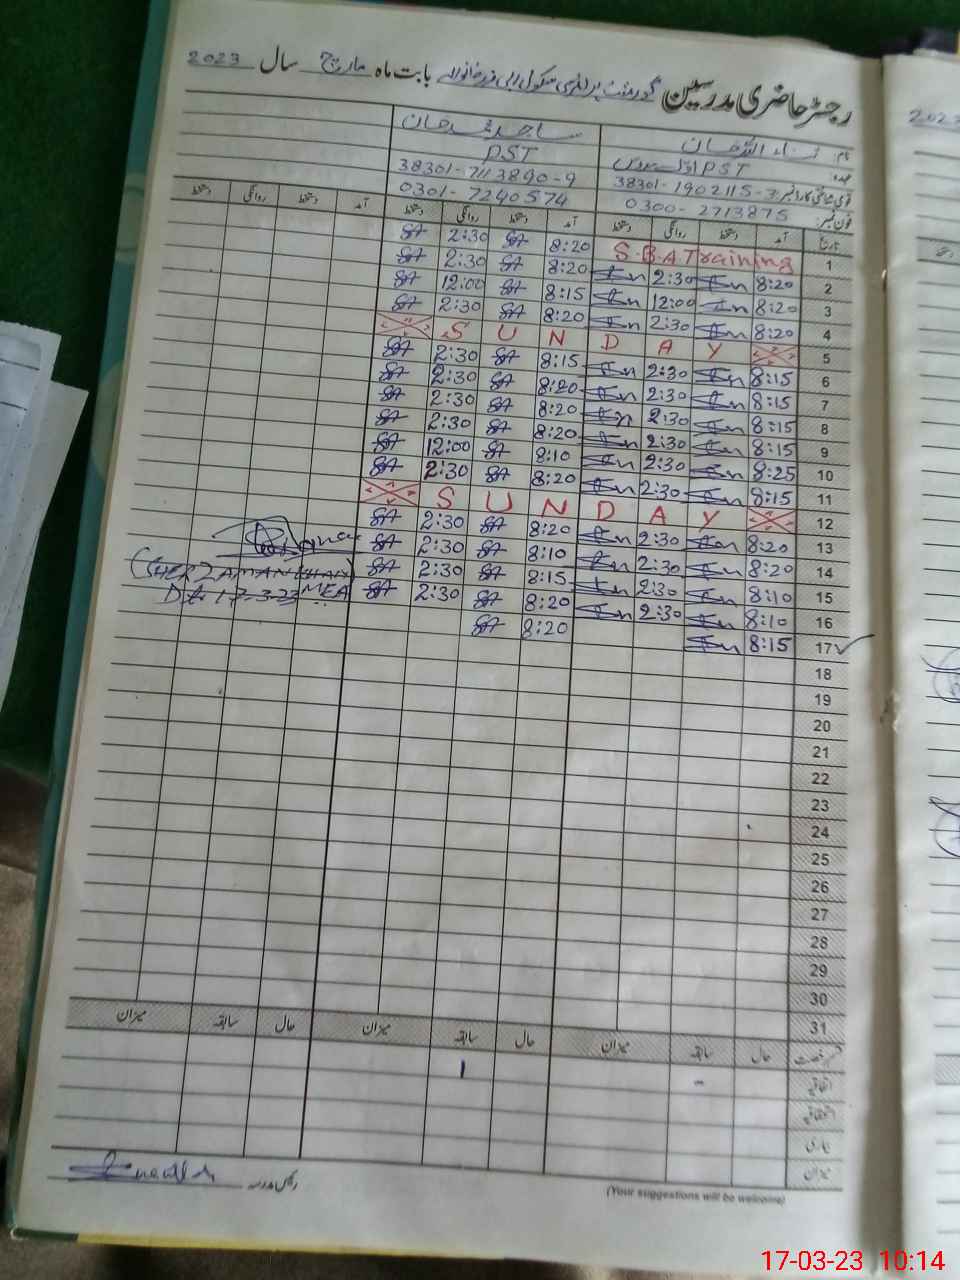 رجسٹر حاضری مدرسین گورنمنٹ پرائمری سکول بابت ماہ مارچ سال 2023
نام: ثناء اللہ خان ساجد محمد خان
عہدہ: PST PST
قومی شناختی کارڈ نمبر: 38301-1902115-7 38301-7113890-9
فون نمبر: 0300-2713875 0301-7240574
تاریخ آمد دستخط روانگی دستخط آمد دستخط روانگی دستخط آمد دستخط روانگی دستخط
SA 2:30 SA 8:20 S.B.A Training 1
SA 2:30 SA 8:20 2:30 8:20 2
SA 12:00 SA 8:15 12:00 8:20 3
SA 2:30 SA 8:20 2:30 8:20 4
S U N D A Y 5
SA 2:30 SA 8:15 2:30 8:15 6
SA 2:30 SA 8:20 2:30 8:15 7
SA 2:30 SA 8:20 2:30 8:15 8
SA 2:30 SA 8:20 2:30 8:15 9
SA 12:00 SA 8:10 2:30 8:25 10
SA 2:30 SA 8:20 2:30 8:15 11
S U N D A Y 12
SA 2:30 SA 8:20 2:30 8:20 13
SA 2:30 SA 8:10 2:30 8:20 14
SA 2:30 SA 8:15 2:30 8:10 15
SA 2:30 SA 8:20 2:30 8:10 16
SA 8:20 8:15 17
(SHER ZAMAN KHAN)
Dt. 17-3-23 MEA
18
19
20
21
22
23
24
25
26
27
28
29
30
31
قسم رخصت حال سابقہ میزان حال سابقہ میزان حال سابقہ میزان
اتفاقیہ - 1
استحقاقیہ
بیماری
میزان
رئیس مدرسہ
(Your suggestions will be welcome)
2023
17-03-23 10:14